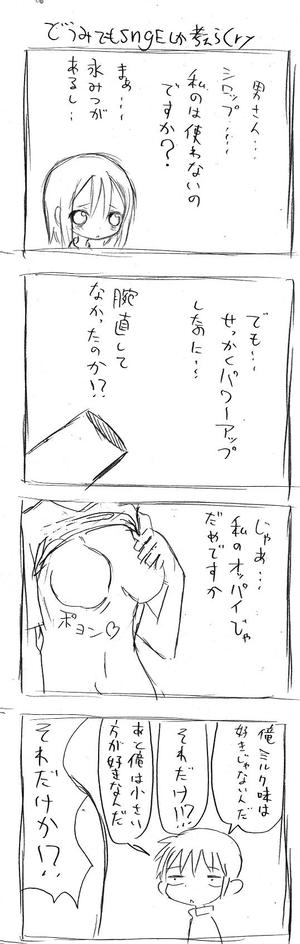 どうみてもSngEしか考えらCry
男さん…
シロップ…
私のは使わないの
ですか？
まぁ…
氷みつが
あるし…
でも…
せっかくパワーアップ
したのに…
腕直して
なかったのか!?
じゃあ…
私のオッパイじゃ
だめですか
ポヨン♡
俺ミルク味は
好きじゃないんだ
それだけ!!?
あと俺は小さい
方が好きなんだ
それだけか!?